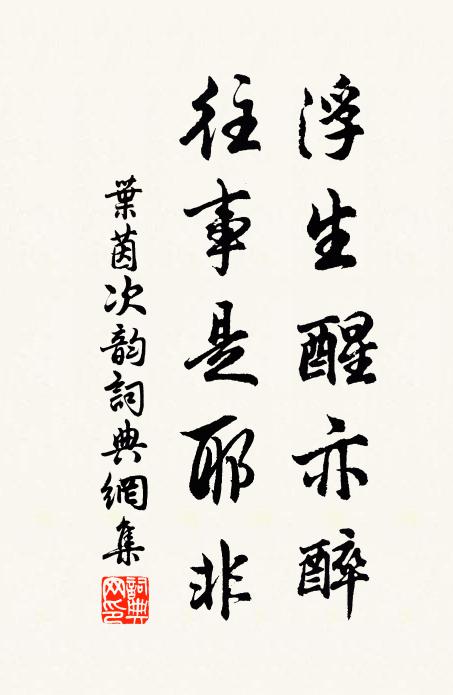 浮生醒亦醉
往事是耶非
葉茵次韵詞典網集
詞典網印